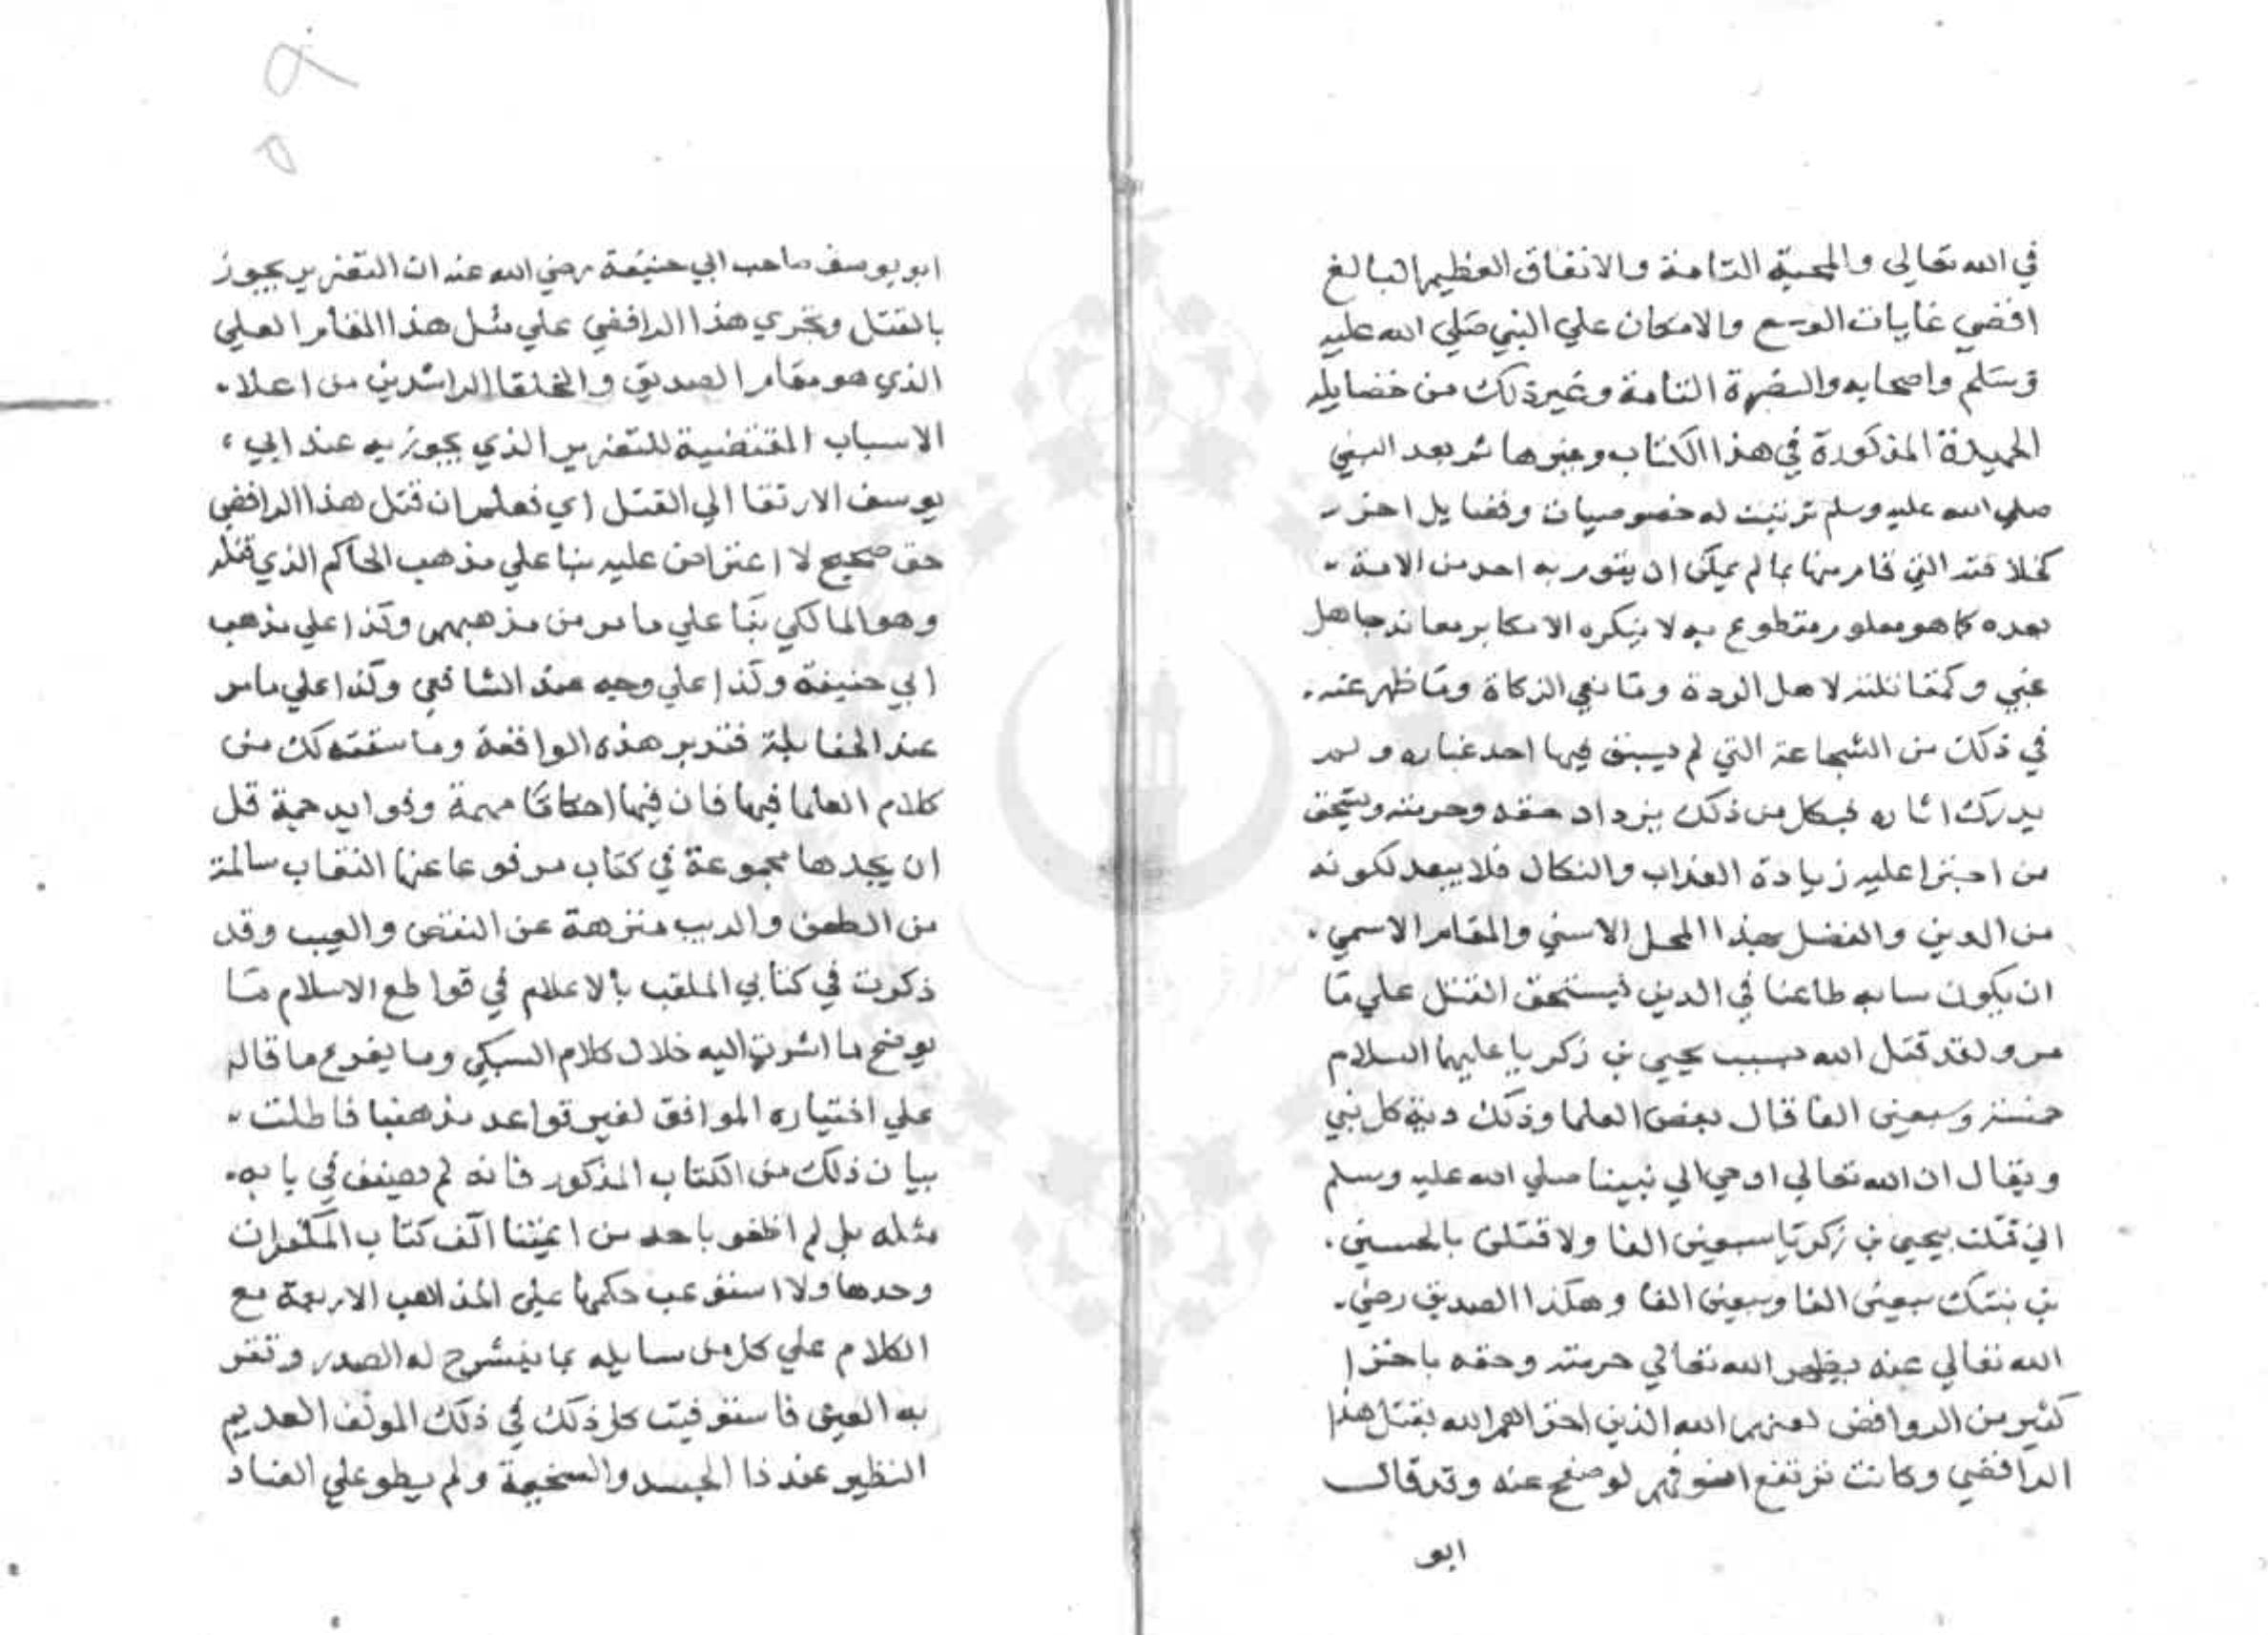 في الله تعالى والمحبة التامة والانفاق العظيم البالغ
اقصي غايات الوسع والامكان علي النبي صلي الله عليه
وسلم واصحابه والنصرة التامة وغير ذلك من خصايله
الحميدة المذكورة في هذا الكتاب وغيرها ثم بعد النبي
صلي الله عليه وسلم ترتبت له خصوصيات وفضايل اخر
كخلافته التي قام بها بما لم يمكن ان يقوم به احد من الامة
بعده كما هو معلوم مقطوع به لا ينكره الا مكابر معاند جاهل
غبي وكمقاتلته لاهل الردة ومانعي الزكاة وما ظهر عنه
في ذلك من الشجاعة التي لم يسبق فيها احد غباره ولم
يدرك اثاره فبكل من ذلك يزداد حقه وحرمته ويستحق
من اجترا عليه زيادة العذاب والنكال فلا يبعد لكونه
من الدين والفضل بهذا المحل الاسني والمقام الاسمي
ان يكون سابه طاعنا في الدين فيستحق القتل علي ما
مر ولقد قتل الله بسبب يحيي بن زكريا عليهما السلام
خمسة وسبعين الفا قال بعض العلما وذلك دية كل نبي
ويقال ان الله تعالي اوحي الي نبينا صلي الله عليه وسلم
اني قتلت بيحيي بن زكريا سبعين الفا ولاقتلن بالحسين
بن بنتك سبعين الفا وسبعين الفا وهكذا الصديق رضي
الله تعالي عنه يظهر الله تعالي حرمته وحقه باخزا
كثير من الروافض لعنهم الله الذين اخزاهم الله بقتل هذا
الرافضي وكانت ترتفع انوفهم لو صفح عنه وقد قال
ابو
ابو يوسف صاحب ابي حنيفة رضي الله عنه ان التعزير يجوز
بالقتل وتجري هذا الرافضي علي مثل هذا المقام العلي
الذي هو مقام الصديق والخلفا الراشدين من اعلا
الاسباب المقتضية للتعزير الذي يجوز به عند ابي
يوسف الارتقا الي القتل اي فعلم ان قتل هذا الرافضي
حق صحيح لا اعتراض عليه بنا علي مذهب الحاكم الذي قتله
وهو المالكي بنا علي ما مر من مذهبهم وكذا علي مذهب
ابي حنيفة وكذا علي وجه عند الشافعي وكذا علي ما مر
عند الحنابلة فتدبر هذه الواقعة وما سقته لك من
كلام العلما فيها فان فيها احكاما مهمة وفوايد جمة قل
ان يجدها مجموعة في كتاب مرفوعا عنها النقاب سالمة
من الطعن والريب منزهة عن النقص والعيب وقد
ذكرت في كتابي الملقب بالاعلام في قواطع الاسلام ما
يوضح ما اشرت اليه خلال كلام السبكي وما يفرع ما قاله
علي اختياره الموافق لغير قواعد مذهبنا فاطلت
بيان ذلك من الكتاب المذكور فانه لم يصنف في بابه
مثله بل لم اظفر باحد من ايمتنا الف كتاب المكفرات
وحدها ولا استوعب حكمها علي المذاهب الاربعة مع
الكلام علي كل من سايله بما ينشرح له الصدر وتقر
به العين فاستوفيت كل ذلك في ذلك المولف العديم
النظير عند ذا الحسد والسخيمة ولم يطو علي العناد